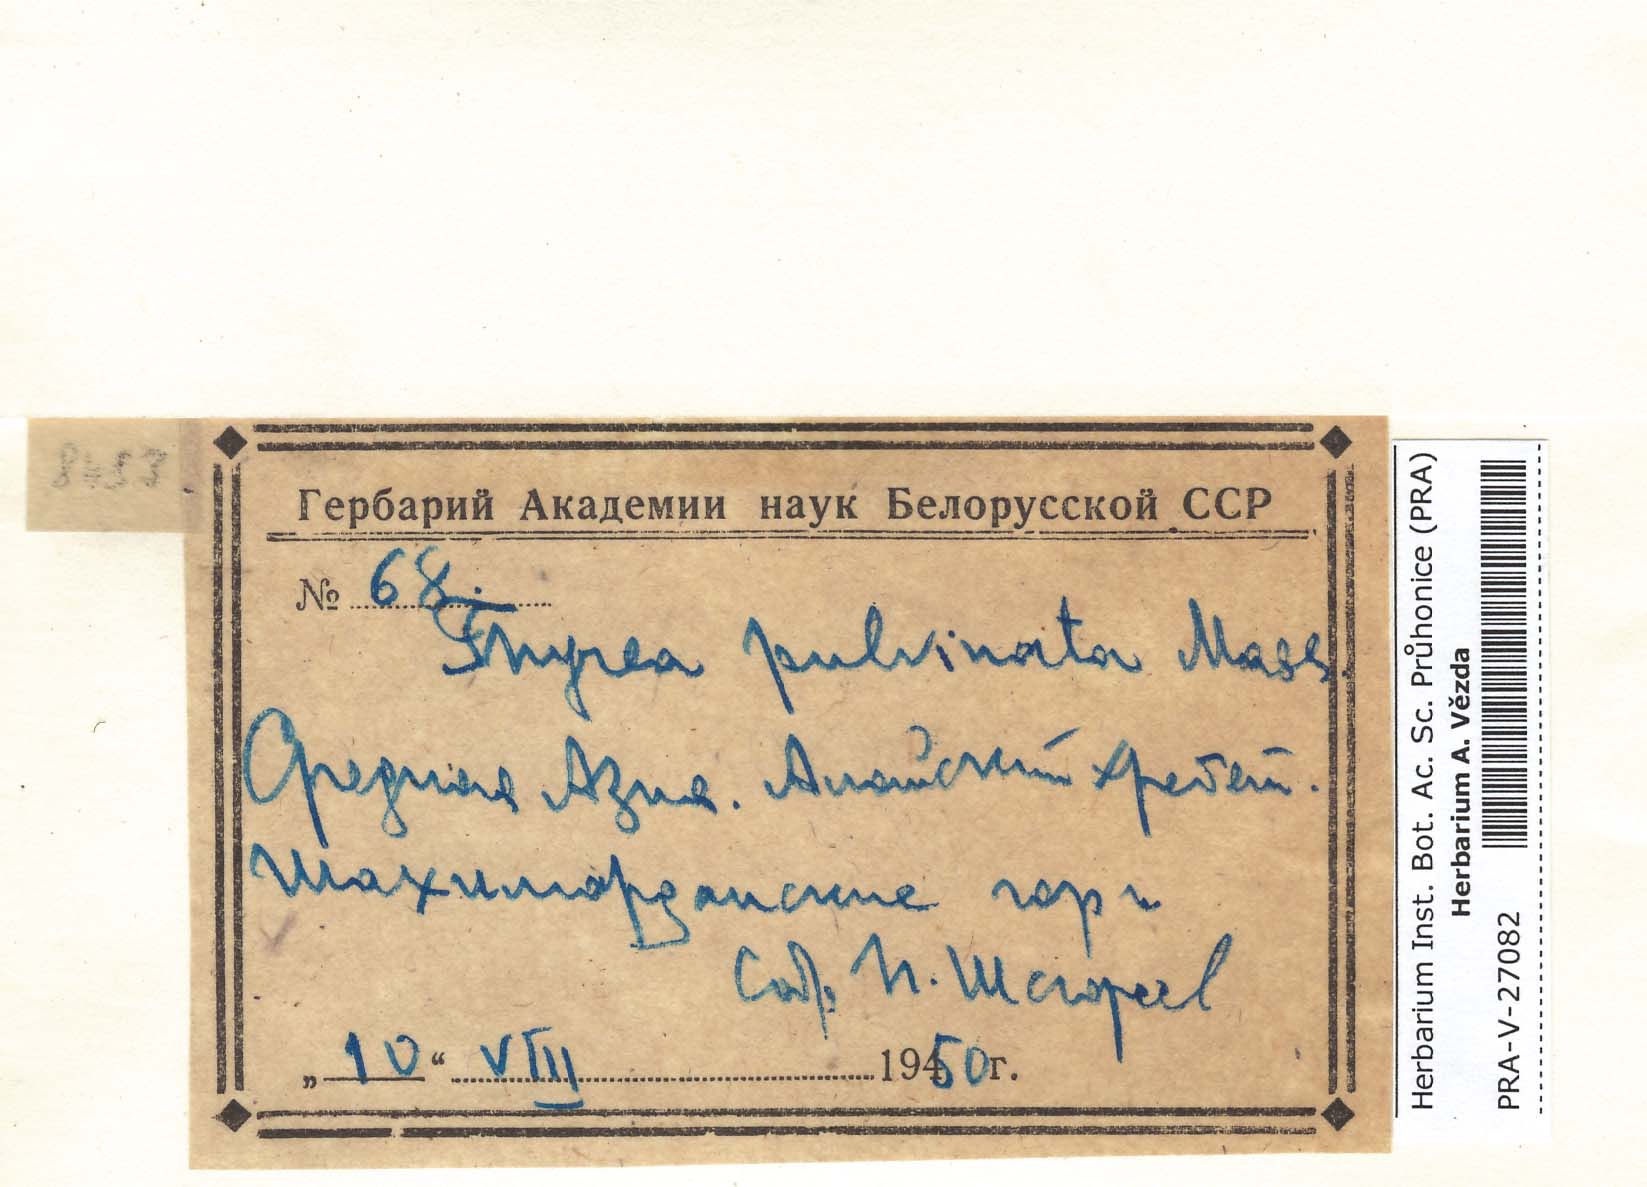 8453
Гербарий Академии наук Белорусской ССР
№ 68.
Thyrea pulvinata Mass.
Средная Азия. Алайский хребет.
Шахимарданские горы
Соб.
„10“ VIII 1950 г.
Herbarium Inst. Bot. Ac. Sc. Průhonice (PRA)
Herbarium A. Vězda
PRA-V-27082